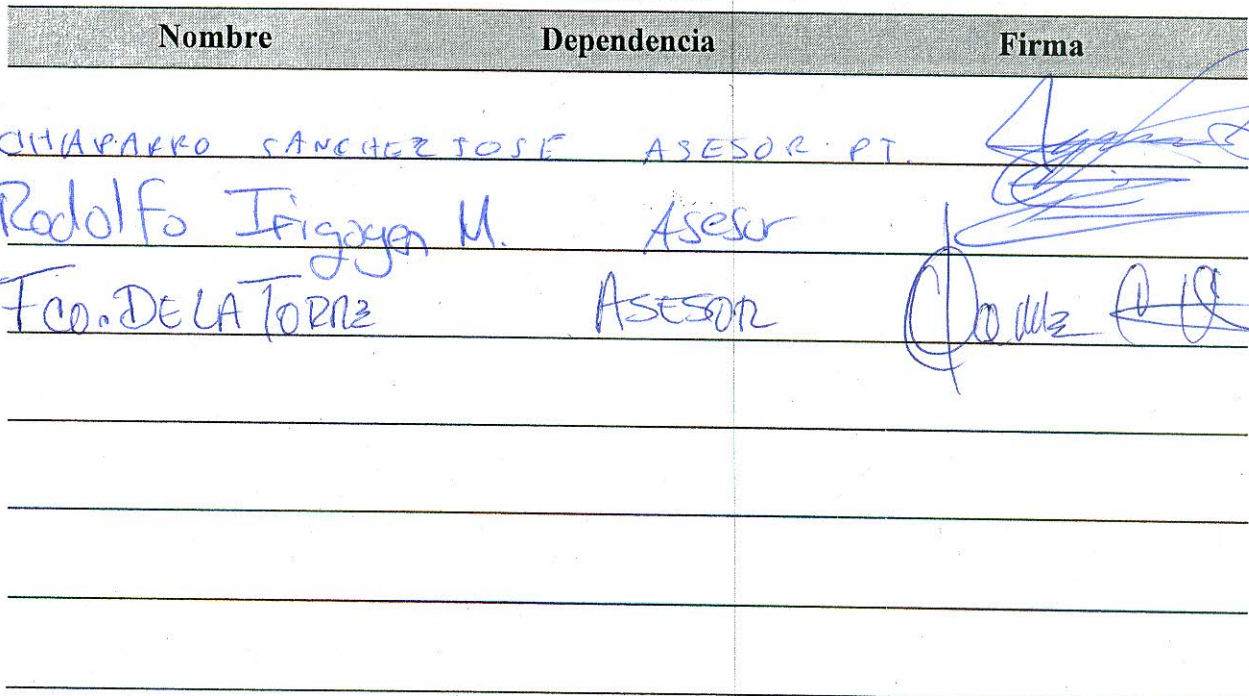 Nombre Dependencia Firma
CHAPARRO SANCHEZ JOSE ASESOR PT.
Rodolfo Irigoyen M. Asesor
Fco. DE LA TORRE ASESOR